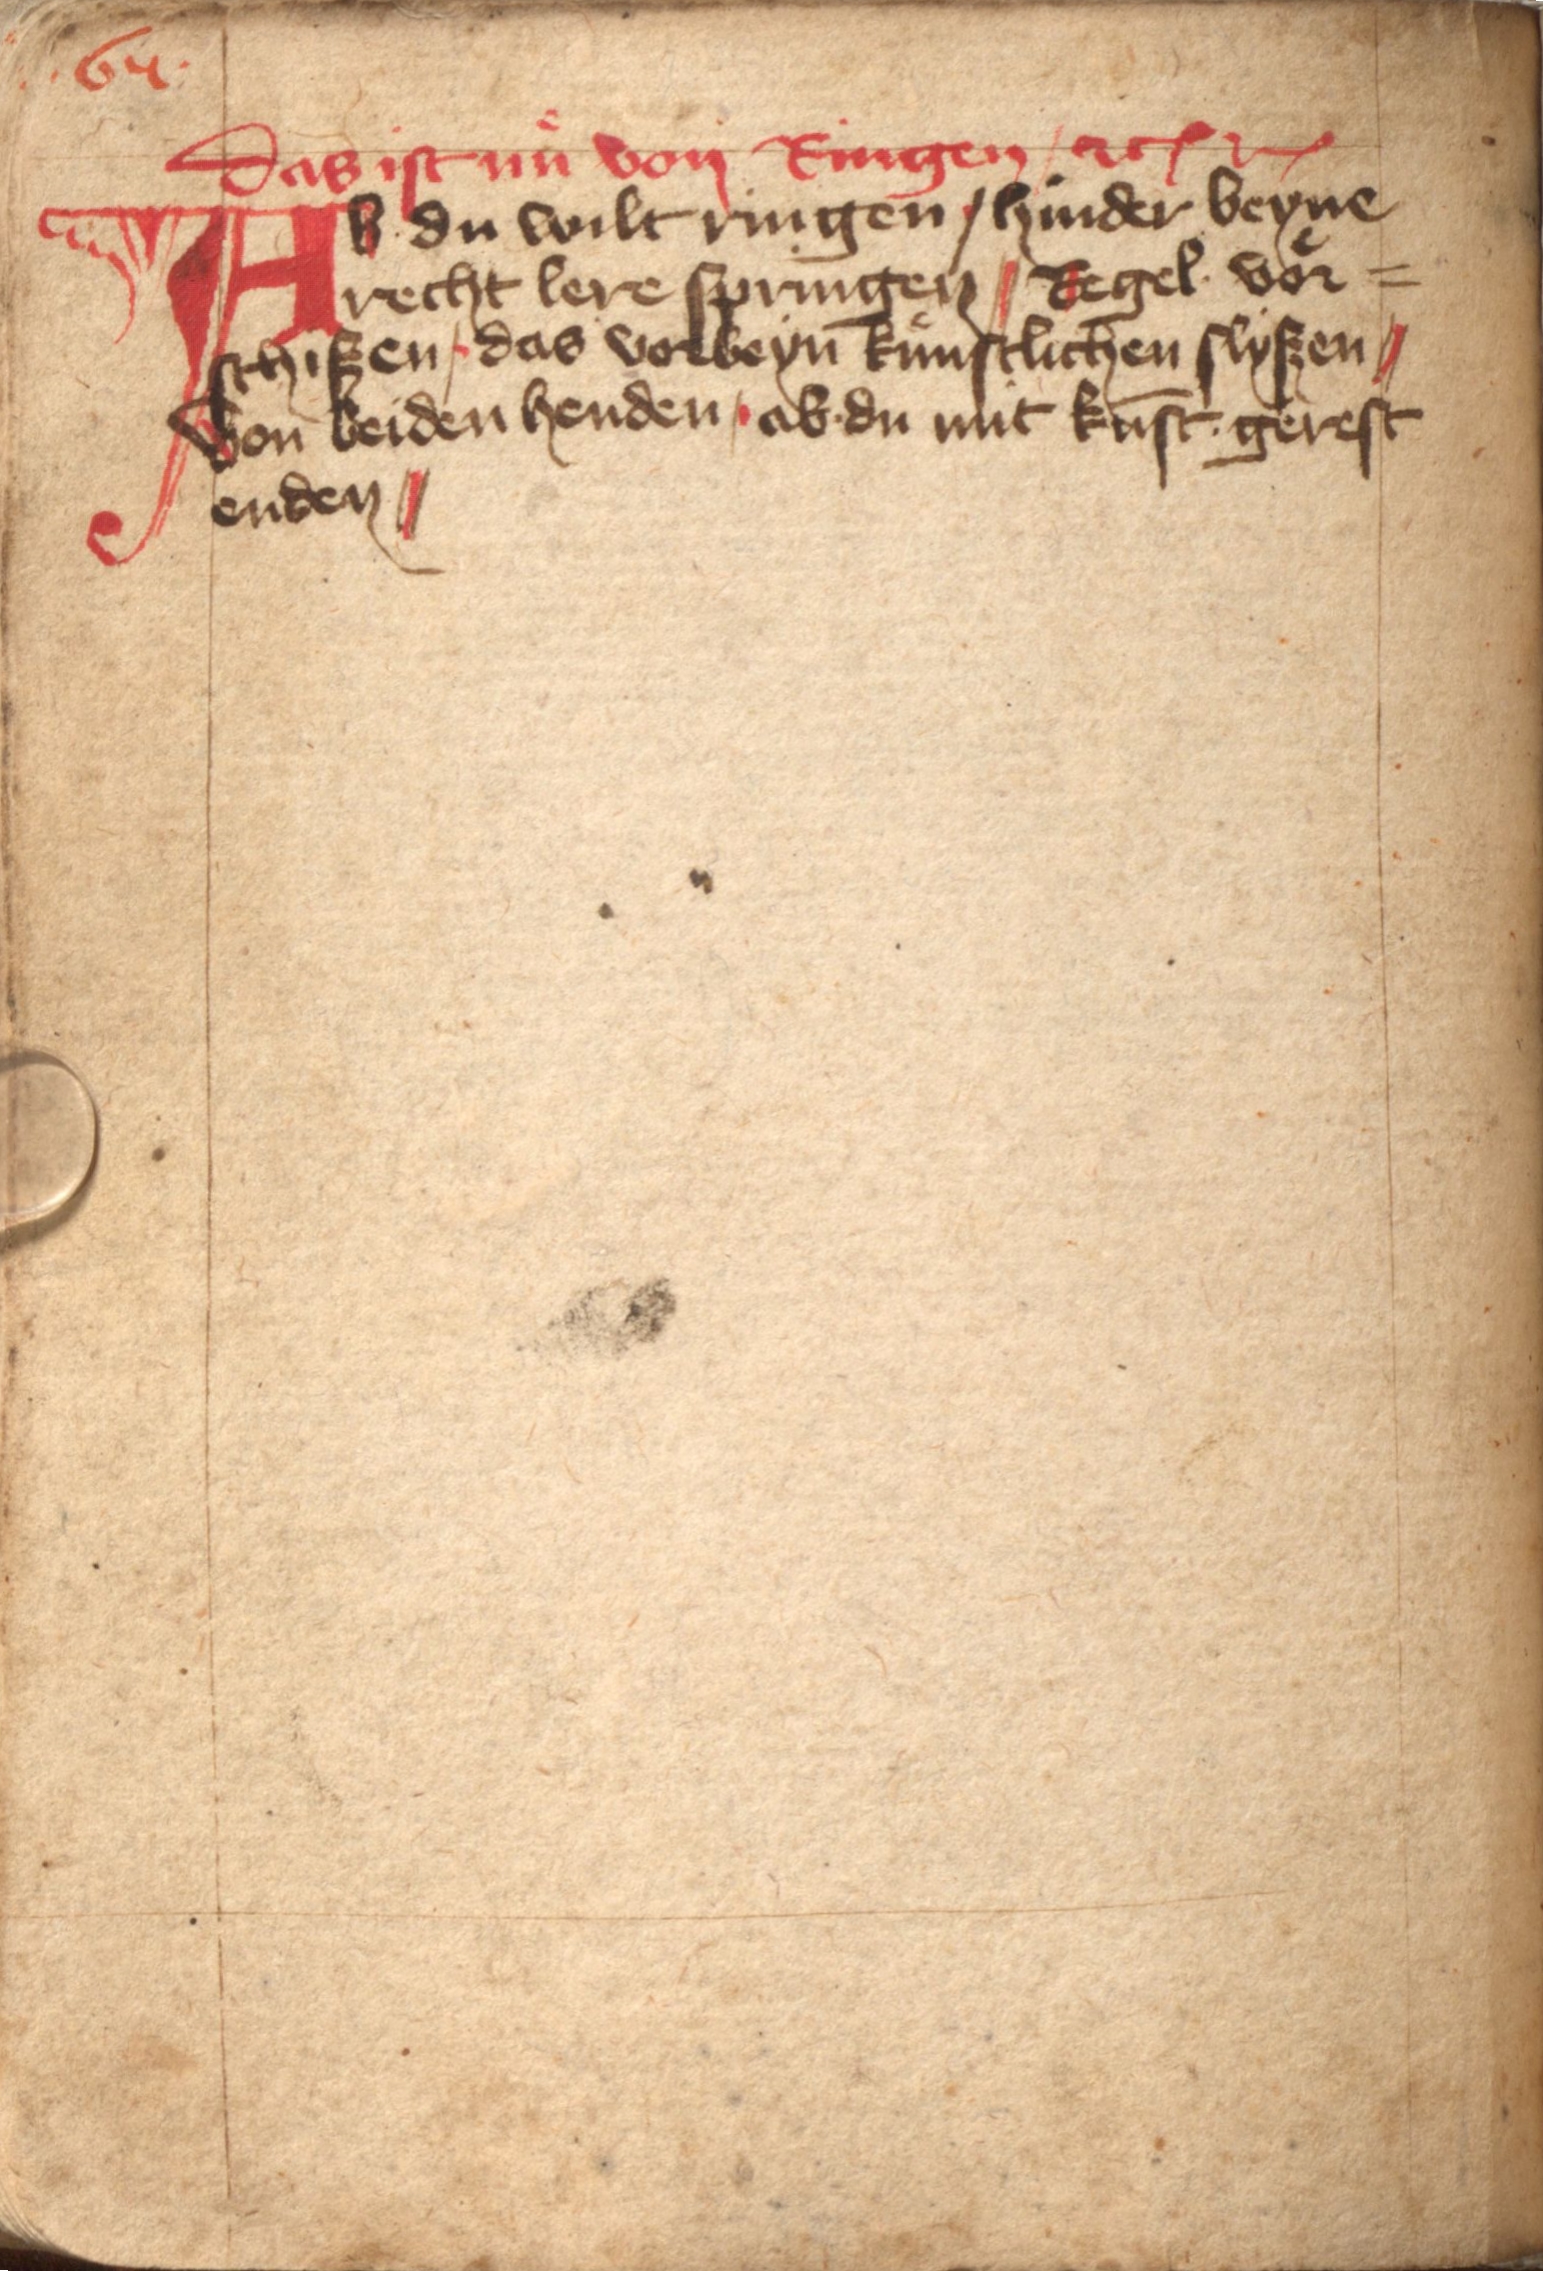 ·64·
Das ist nu᷒ von Ringen / ꝛcꝭ
Ab · du wilt ringen / hinder beyne
recht lere springen // Regel · vör =
schißen / das vorbeyn̄ kůnstlichen slyßen //
Von beiden henden / ab · du mit kūnst · gerest
enden //